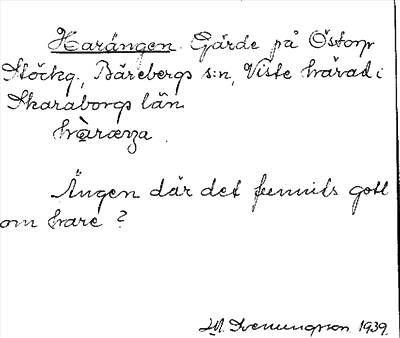 Harängen. Gärde på Östorp
Stöckg., Bärebergs s:n, Viste härad i
Skaraborgs län.
hàrænga.
Ängen där det funnits gott
om hare?
M. Svenungsson 1939.